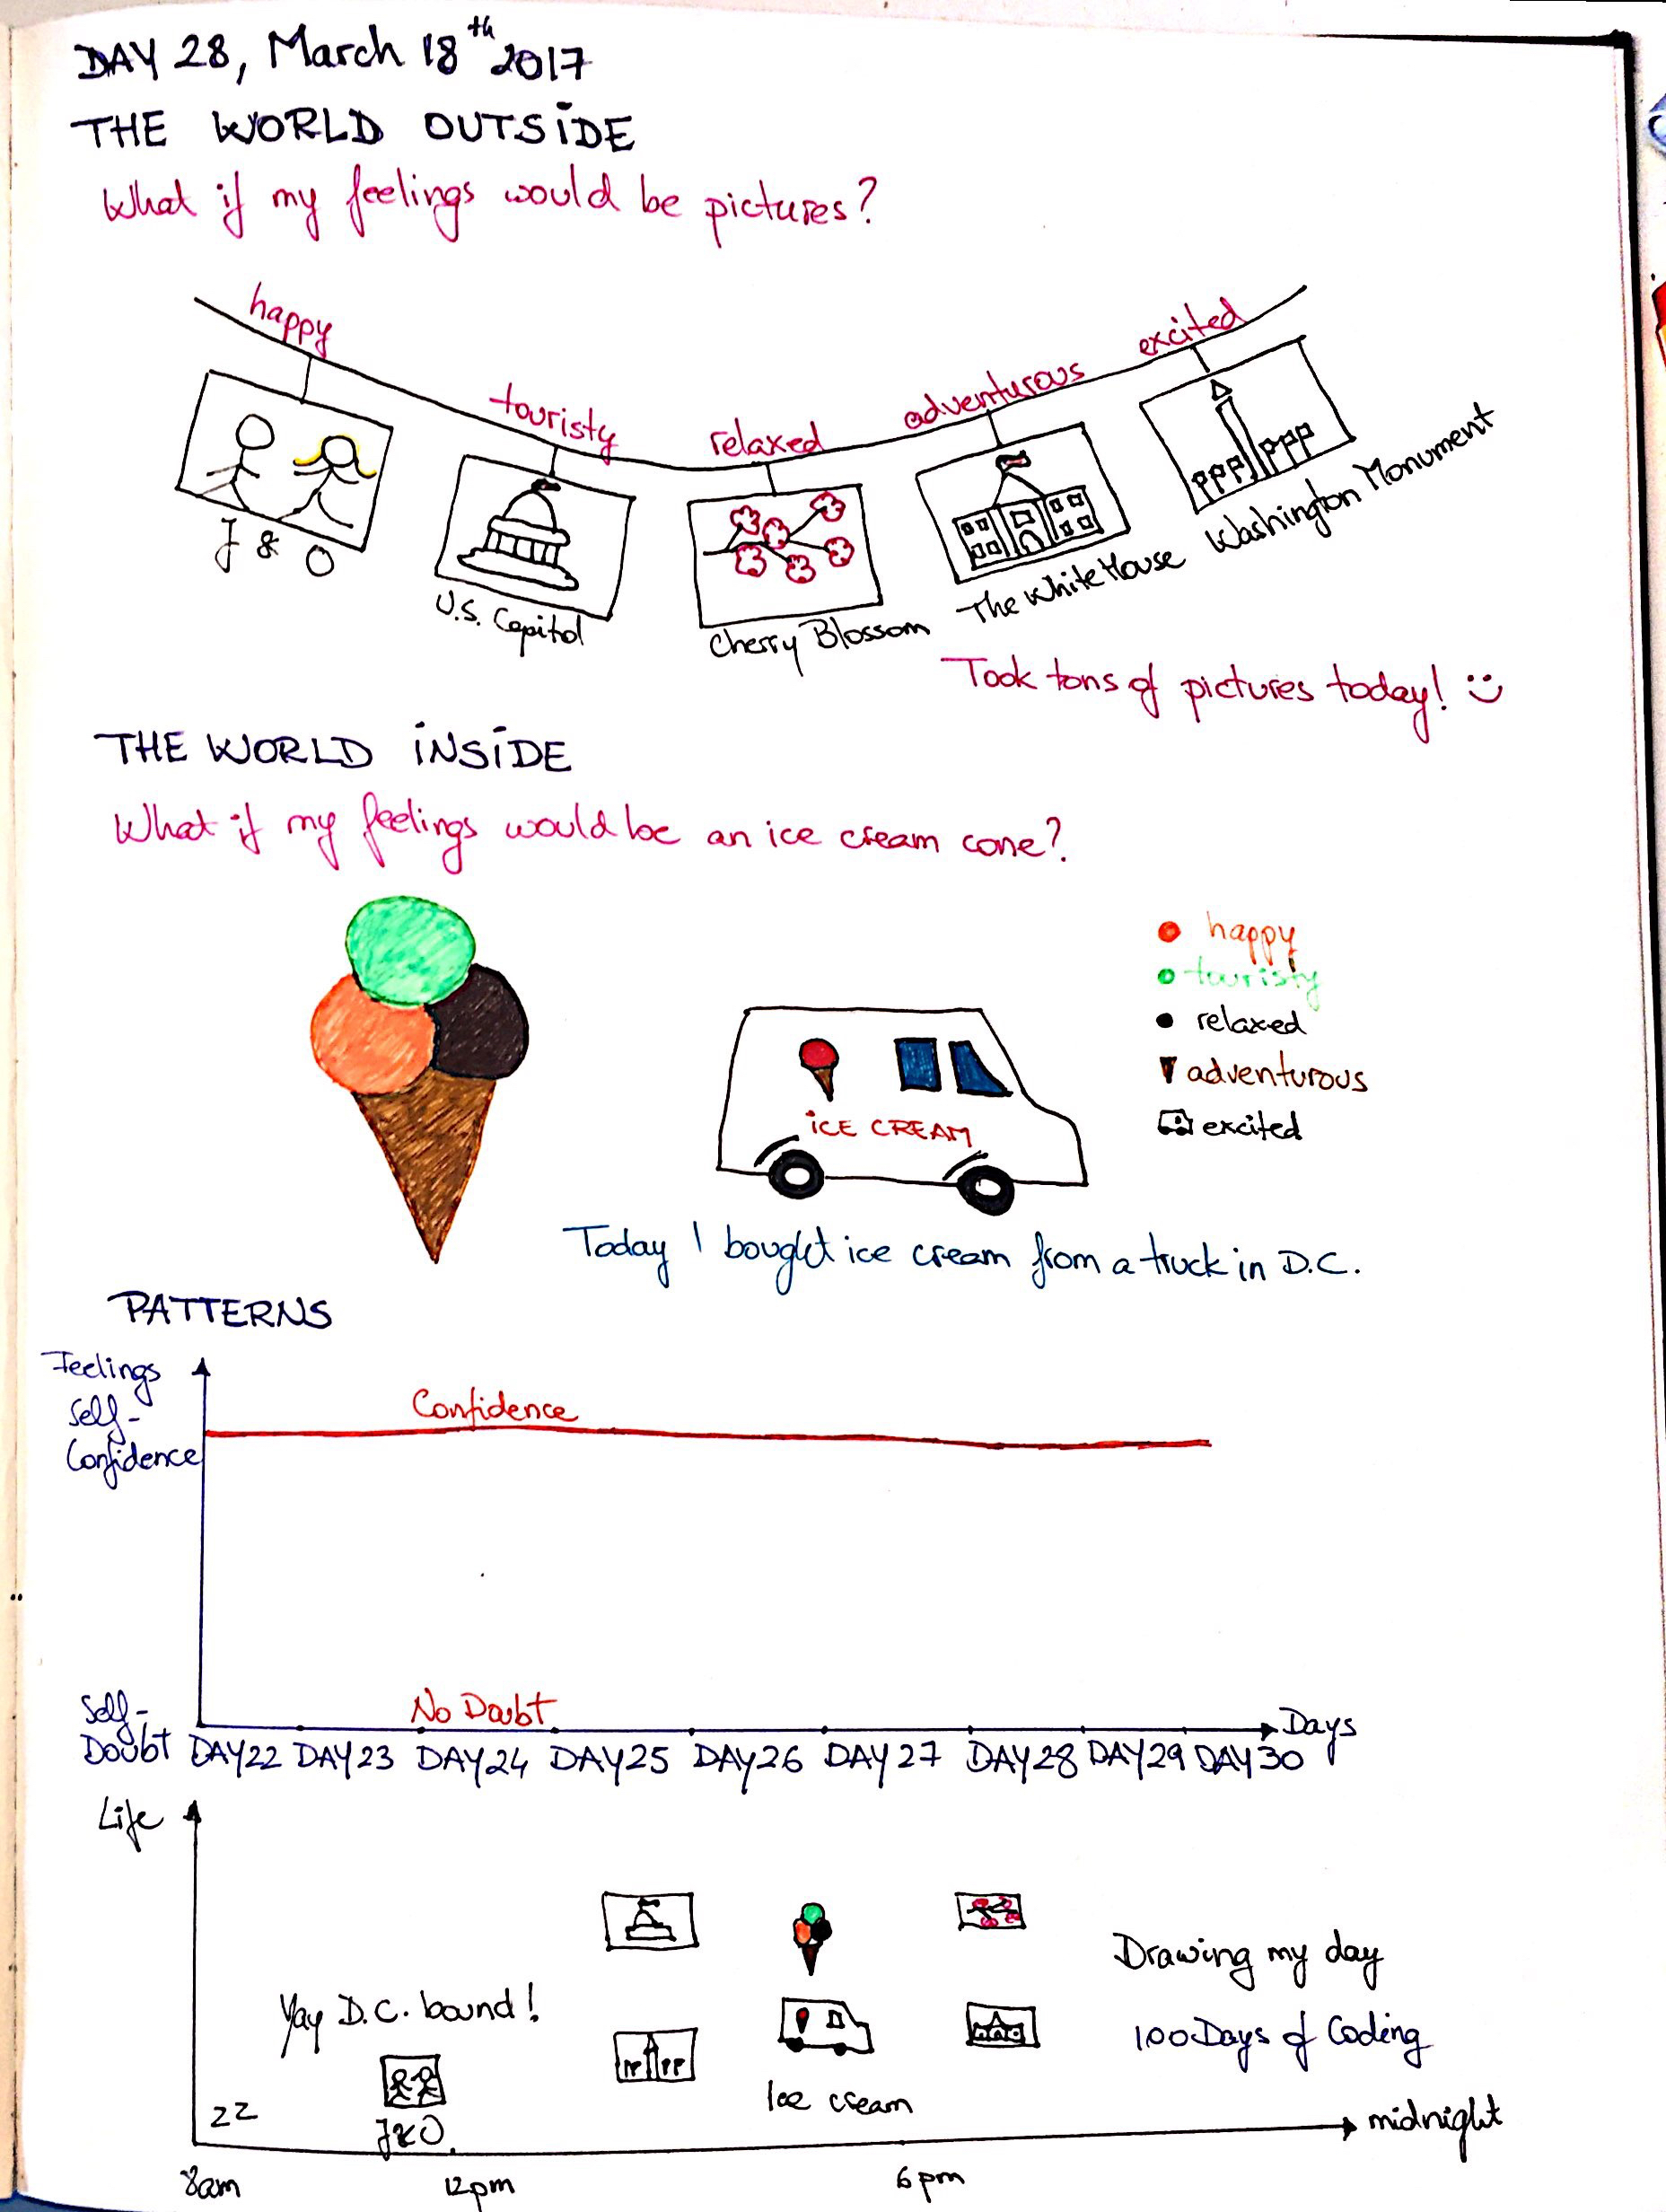 DAY 28, March 18th 2017
THE WORLD OUTSIDE
What if my feelings would be pictures?
happy
touristy
relaxed
adventurous
excited
J & O
U.S. Capitol
Cherry Blossom
The White House
Washington Monument
Took tons of pictures today! :)
THE WORLD INSIDE
What if my feelings would be an ice cream cone?
happy
touristy
relaxed
adventurous
excited
ICE CREAM
Today I bought ice cream from a truck in D.C.
PATTERNS
Feelings
Self-
Confidence
Confidence
No Doubt
Self-
Doubt
Days
DAY22 DAY23 DAY24 DAY25 DAY26 DAY27 DAY28 DAY29 DAY30
Life
Yay D.C. bound!
Drawing my day
100Days of Coding
zz
J&O
Ice cream
midnight
8am
12pm
6pm